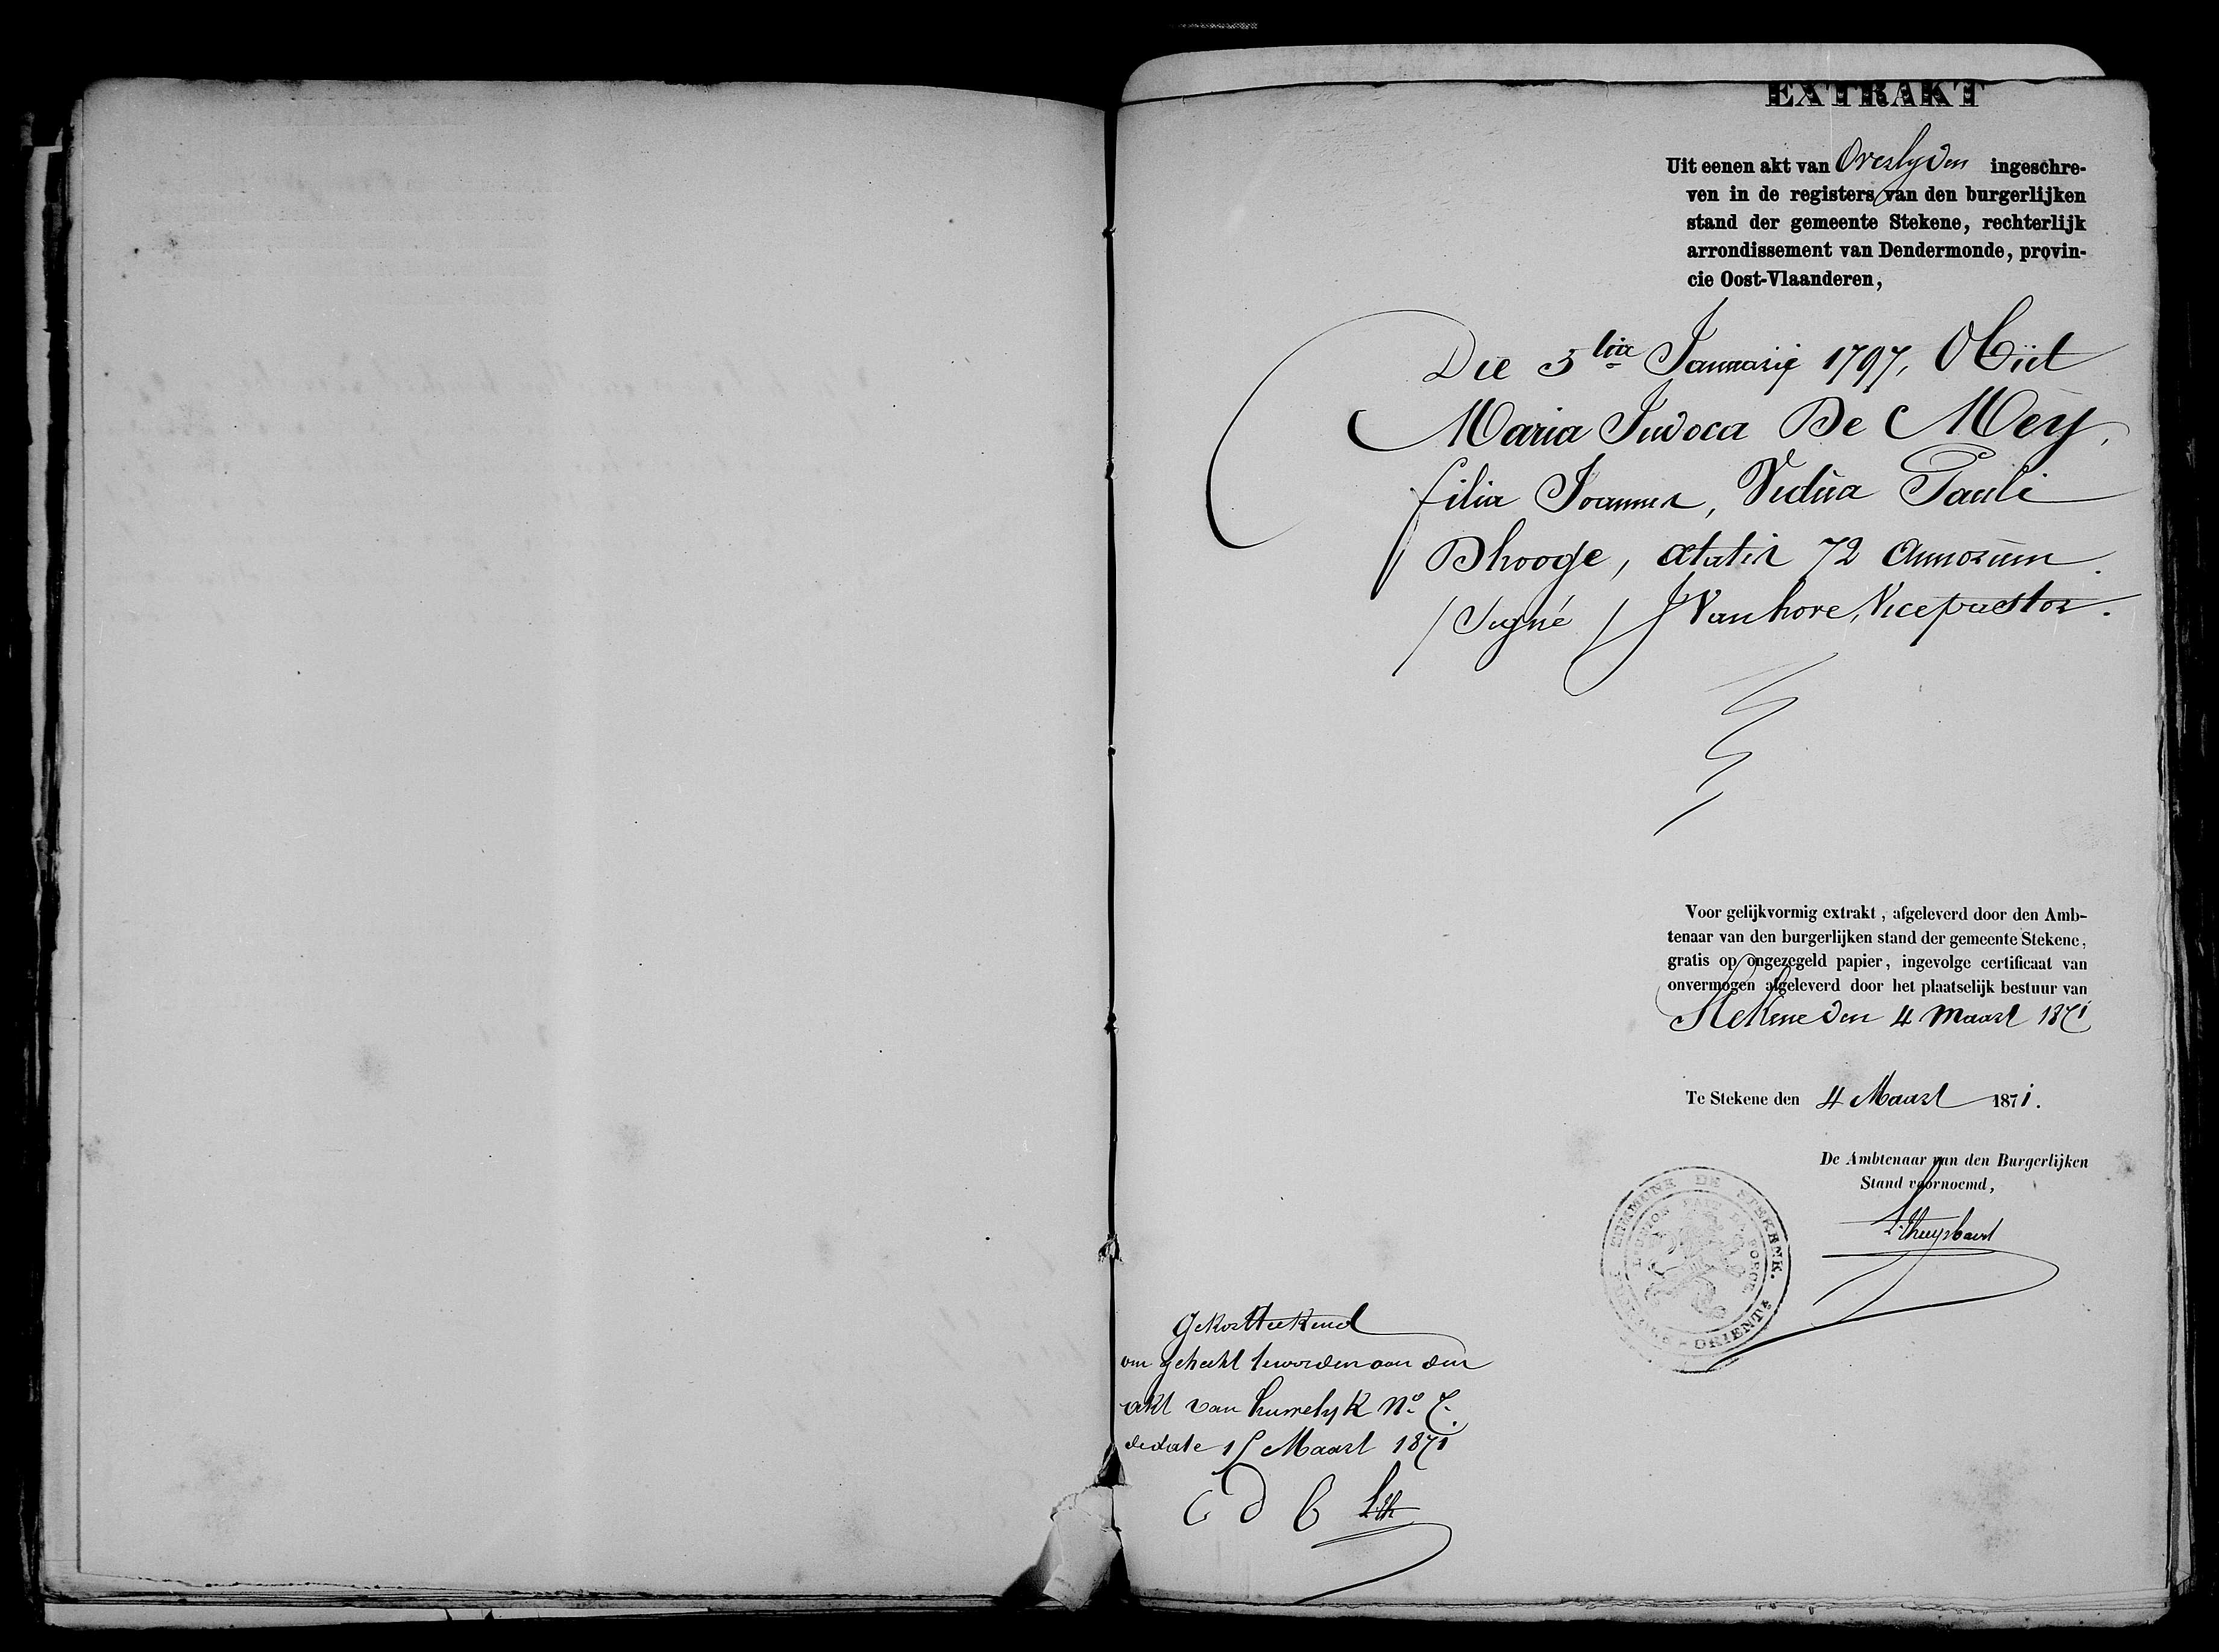 EXTRAKT
Uit eenen akt van Overlyden ingeschre-
ven in de registers van den burgerlijken
stand der gemeente Stekene, rechterlijk
arrondissement van Dendermonde, provin-
cie Oost-Vlaanderen,
Die 5tia Januarij 1797, Obiit
Maria Judoca De Meÿ,
filia Joannis, Vidua Pauli
Dhooge, ætatis 72 annorum.
/Signé/ J Vanhove, Vicepastor.
Voor gelijkvormig extrakt, afgeleverd door den Amb-
tenaar van den burgerlijken stand der gemeente Stekene,
gratis op ongezegeld papier, ingevolge certificaat van
onvermogen afgeleverd door het plaatselijk bestuur van
Stekene den 4 Maart 1871
Te Stekene den 4 Maart 1871.
De Ambtenaar van den Burgerlijken
Stand voornoemd,
COMMUNE DE STEKENE.
L'UNION FAIT LA FORCE
ORIENTALE
Gekortteekend
om gehecht te worden aan den
akt van huwelyk No 7.
de date 15 Maart 1871
C D B